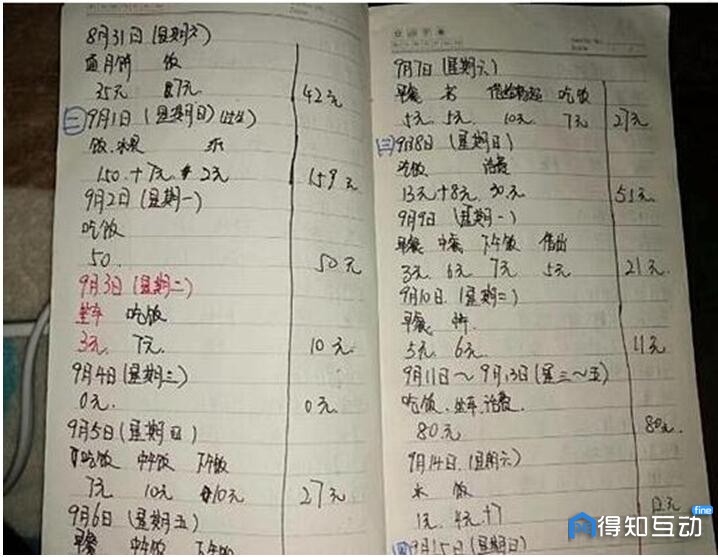 8月31日(星期六)
月饼 饭
35元 7元 42元
(二)9月1日(星期日)
饭.水果
150.+7元 2元 159元
9月2日(星期一)
吃饭
50. 50元
9月3日(星期二)
坐车 吃饭
3元. 7元. 10元.
9月4日(星期三)
0元. 0元.
9月5日(星期四)
吃饭 中午饭 下午饭
7元 10元 10元. 27元
9月6日(星期五)
早餐 中午饭 下午饭
9月7日(星期六)
早餐 书 吃饭
5元. 5元. 10元 7元 27元
(三)9月8日(星期日)
吃饭 话费
13元+8元. 30.元 51元
9月9日(星期一)
早餐 中餐 下午饭 借出
3元. 6元 7元 5元 21元.
9月10日.(星期二)
早餐 饼.
5元. 6元. 11元
9月11日~9月13日(星三~五)
吃饭.坐车.话费.
80元 80元.
9月14日.(星期六)
水 饭
1元. 4元+7 12元
9月15日(星期日)
得知互动
fine